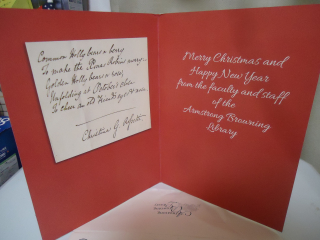 Common Holly bears a berry
To make the Robins merry:
Golden Holly bears a rose,
Unfolding at October's close
To cheer an old Friend's eyes & nose.
Christina G. Rossetti
Merry Christmas and
Happy New Year
from the faculty and staff
of the
Armstrong Browning
Library